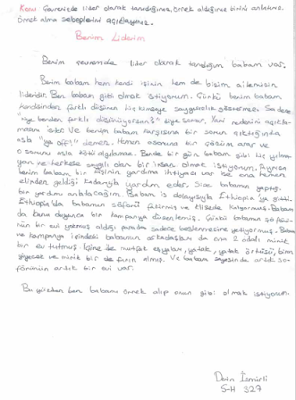 Konu: Çevrenizde lider olarak tanıdığınız, örnek aldığınız birini anlatınız.
Örnek alma sebeplerini açıklayınız.
Benim Liderim
Benim çevremde lider olarak tanıdığım babam var.
Benim babam hem kendi işinin hem de bizim ailemizin
lideridir. Ben babam gibi olmak istiyorum. Çünkü benim babam
kendisinden farklı düşünen hiç kimseye saygısızlık göstermez. Sadece
"niye benden farklı düşünüyorsun?" diye sorar. Yani nedenini açıkla-
masını ister. Ve benim babam karşısına bir sorun çıktığında
asla "ya öff!" demez. Hemen sorununa bir çözüm arar ve
o sorunu asla kötü algılamaz. Bende bir gün babam gibi hiç yılma-
yan ve herkese saygılı olan bir insan olmak istiyorum. Ayrıca
benim babam bir kişinin yardıma ihtiyacı var ise ona hemen
elinden geldiği kadarıyla yardım eder. Size babamın yaptığı
bir yardımı anlatacağım. Babam iş dolayısıyla Ethiopia'ya gitti.
Ethiopia'da babamın şöförü
Babam
da bunu duyunca bir kampanya düzenlemiş. Çünkü babamın şöförü-
nün bir evi yokmuş aldığı parada sadece beslenmesine yetiyormuş. Babam
ve kampanya içindeki babamın arkadaşları da ona 2 odalı minik
bir ev tutmuş. İçine de mutfak eşyaları, yatak, yatak örtüsü, biraz
yiyecek ve minik bir de fırın almış. Ve babam sayesinde artık şö-
förünün artık bir evi var.
Bu yüzden ben babamı örnek alıp onun gibi olmak istiyorum.
5-H 327